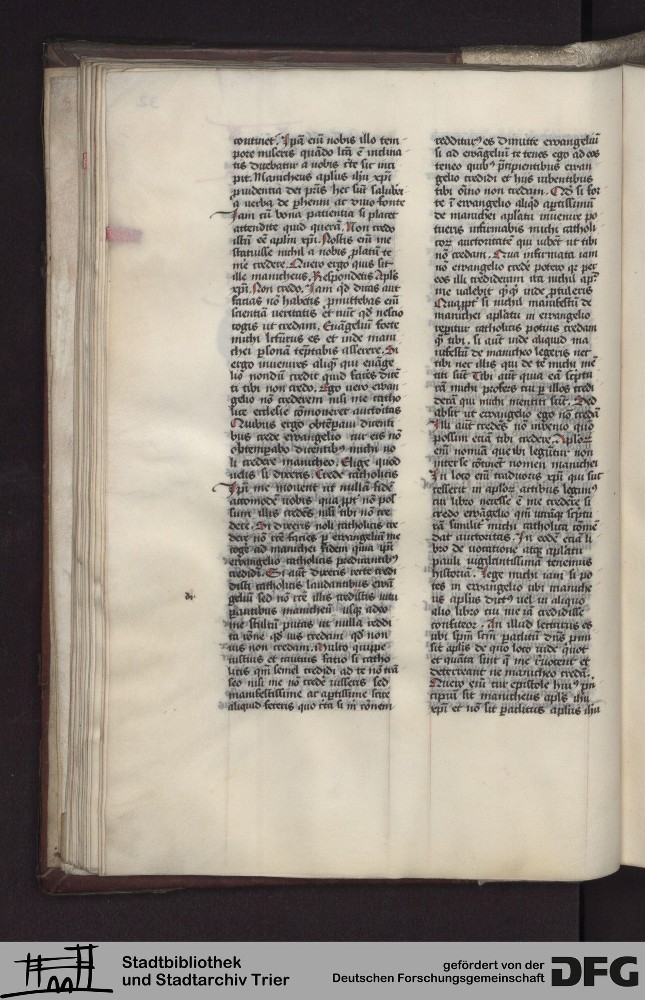 continet. Ipa eni nobis illo tem
pore miseris quādo lta ē
a nobis
pit. Manicheus aplus ihu xpi
prudentia dei pris hec sut salubia
a verba de phenni ac vivo fonte
Iam cū bona patientia si placet
attendite quid querā. Non credo
istū eē aplm xpi. Nostis eni me
statuisse nichil a nobis platū te
me credere. Quero ergo quis sit
ille manicheus. Respondetis Apls
xpi. Non credo. Iam qd dicas aut
facias nō habebis pmittebas eni
scientiā veritatis et nūc qd nescio
cogis ut credam. Evāgeliū forte
michi lcturus es et inde mani
chei psonā temptabis asserere. Si
ergo invenires aliquē qui evāge
lio nondū credit quid faceres dicē
ti tibi non credo. Ego vero evan
gelio nō crederem nisi me catho
lice ecclesie cōmoveret auctoitas
Quibus ergo obtēpavi dicenti
bus crede evangelio cur eis nō
obtempabo dicentibus michi no
li credere manicheo. Elige quod
velis si dixeris. Crede catholicis
Ipi me monent ut nullā fidē
acomodē vobis qua ppt nō pos
sum illis credēs nisi tibi nō cre
dere. Si dixeris noli catholicis cre
dere nō recte facies p evangeliū me
coge ad manichei fidem quia ipi
evangelio catholicis predicantibus
credidi. Si aut dixeris recte credi
disti catholicis laudantibus evā
geliū sed nō recte illis credistis vitu
pantibus manicheū usq adeo
me stultū putas ut nulla reddi
ta rōne qd vis credam qd non
vis non credam. Multo quippe
iustius et cautius facio si catho
licis qm semel credidi ad te nō trā
seo nisi me nō crede iusseris sed
manifestissime ac aptissime scire
aliquid feceris quo cca si m rōnem
redditurus es dimitte evangeliū
si ad evāgeliū te tenes ego ad eos
teneo quibus pcipientibus evan
gelio credidi et hiis iubentibus
tibi oīno non credam. Qd si for
te ī evangelio aliqd aptissimū
de manichei aplatu invenire po
tueris infirmabis michi catholi
cor auctoritatē qui iubet ut tibi
nō credam. Qua infirmata iam
nō evangelio crede potero qr per
eos illi credideram ita nichil ap
me valebit qcqd inde ptuleris
Quappt si nichil manifestū de
manichei aplatu in evangelio
repitur catholicis potius credam
q tibi. si aut inde aliquid ma
nifestū de manicheo legeris nec
tibi nec illis qui de te michi mē
titi sūt Tibi aut quia eā scptu
rā michi profers cui p illos credi
derā qui michi mentiti sūt. Sed
absit ut evangelio ego nō credā
Illi aut credēs nō invenio quo
possim etiā tibi credere. Aplor
eni nomia que ibi legūtur non
inter se cōtinēt nomen manichei
In loco eni traditoris xpi qui suc
cesserit in aplor actibus legimus
cui libro necesse ē me credere si
credo evāgelio qm utraq scptu
rā similit michi catholica cōmē
dat auctoritas. In eodē etiā li
bro de vocatione atq aplatu
pauli vigilantissimā tenemus
historiā. Lege michi iam si po
tes in evangelio ubi manicheu
us aplus dictus vel in aliquo
alio libro cui me iā credidisse
confiteor. An illud lecturus es
ubi spm scm paclitū dns pmi
sit aplis de quo loco vide quot
et quāta sint q me revocent et
deterreant ne manicheo credā.
Quero eni cur epistole huius pn
cipiū sit manicheus apls ihu
xpi et nō sit paclitus aplus ihu
Stadtbibliothek
und Stadtarchiv Trier
gefördert von der
Deutschen Forschungsgemeinschaft
DFG